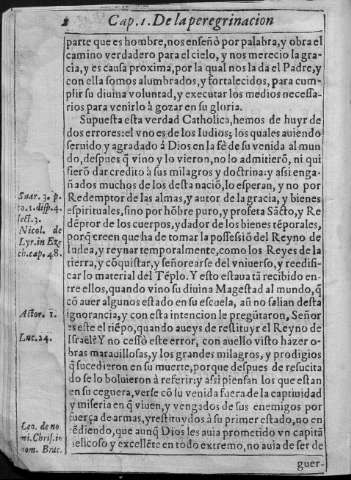 2 Cap. 1. De la peregrinacion
parte que es hombre, nos enseñò por palabra, y obra el
camino verdadero para el cielo, y nos merecio la gra-
cia, y es causa proxima, por la qual nos la da el Padre, y
con ella somos alumbrados, y fortalecidos, para cum-
plir su diuina voluntad, y executar los medios necessa-
rios para venirlo à gozar en su gloria.
Supuesta esta verdad Catholica, hemos de huyr de
dos errores: el vno es de los Iudios; los quales auiendo
seruido, y agradado à Dios en la fè de su venida al mun
do, despues q̃ vino y lo vieron, no lo admitierõ, ni qui
sierõ dar credito à sus milagros y doctrina: y assi enga-
ñados muchos de los desta naciõ, lo esperan, y no por
Redemptor de las almas, y autor de la gracia, y bienes
espirituales, sino por hõbre puro, y profeta Sãcto, y Re
dẽptor de los cuerpos, y dador de los bienes tẽporales,
porq̃ creen que ha de tomar la possessiõ del Reyno de
Iudea, y reynar temporalmente, como los Reyes de la
tierra, y cõquistar, y señorearse del vniuerso, y reedifi-
car lo material del Tẽplo. Y esto estaua tã recibido en-
tre ellos, quando vino su diuina Magestad al mundo, q̃
cõ auer algunos estado en su escuela, aũ no salian desta
ignorancia, y con esta intencion le pregũtaron, Señor
es este el tiẽpo, quando aueys de restituyr el Reyno de
Israel? Y no cessò este error, con auello visto hazer o-
bras marauillosas, y los grandes milagros, y prodigios
q̃ sucedieron en su muerte, porque despues de resucita
do se lo boluieron à referir: y assi piensan los que estan
en su ceguera, verse cõ su venida fuera de la captiuidad
y miseria en q̃ viuen, y vengados de sus enemigos por
fuerça de armas, y restituydos à su primer estado, no en
tẽdiendo, que aunq̃ Dios les auia prometido vn capitã
belicoso y excellẽte en todo extremo, no auia de ser de
guer-
Suar. 3. p.
to. 1. disp. 4.
sect. 3.
Nicol. de
Lyr. in Eze
ch. cap. 48.
Actor. 1.
Luc. 24.
Leo. de no
mi. Chris. in
nom. Brac.